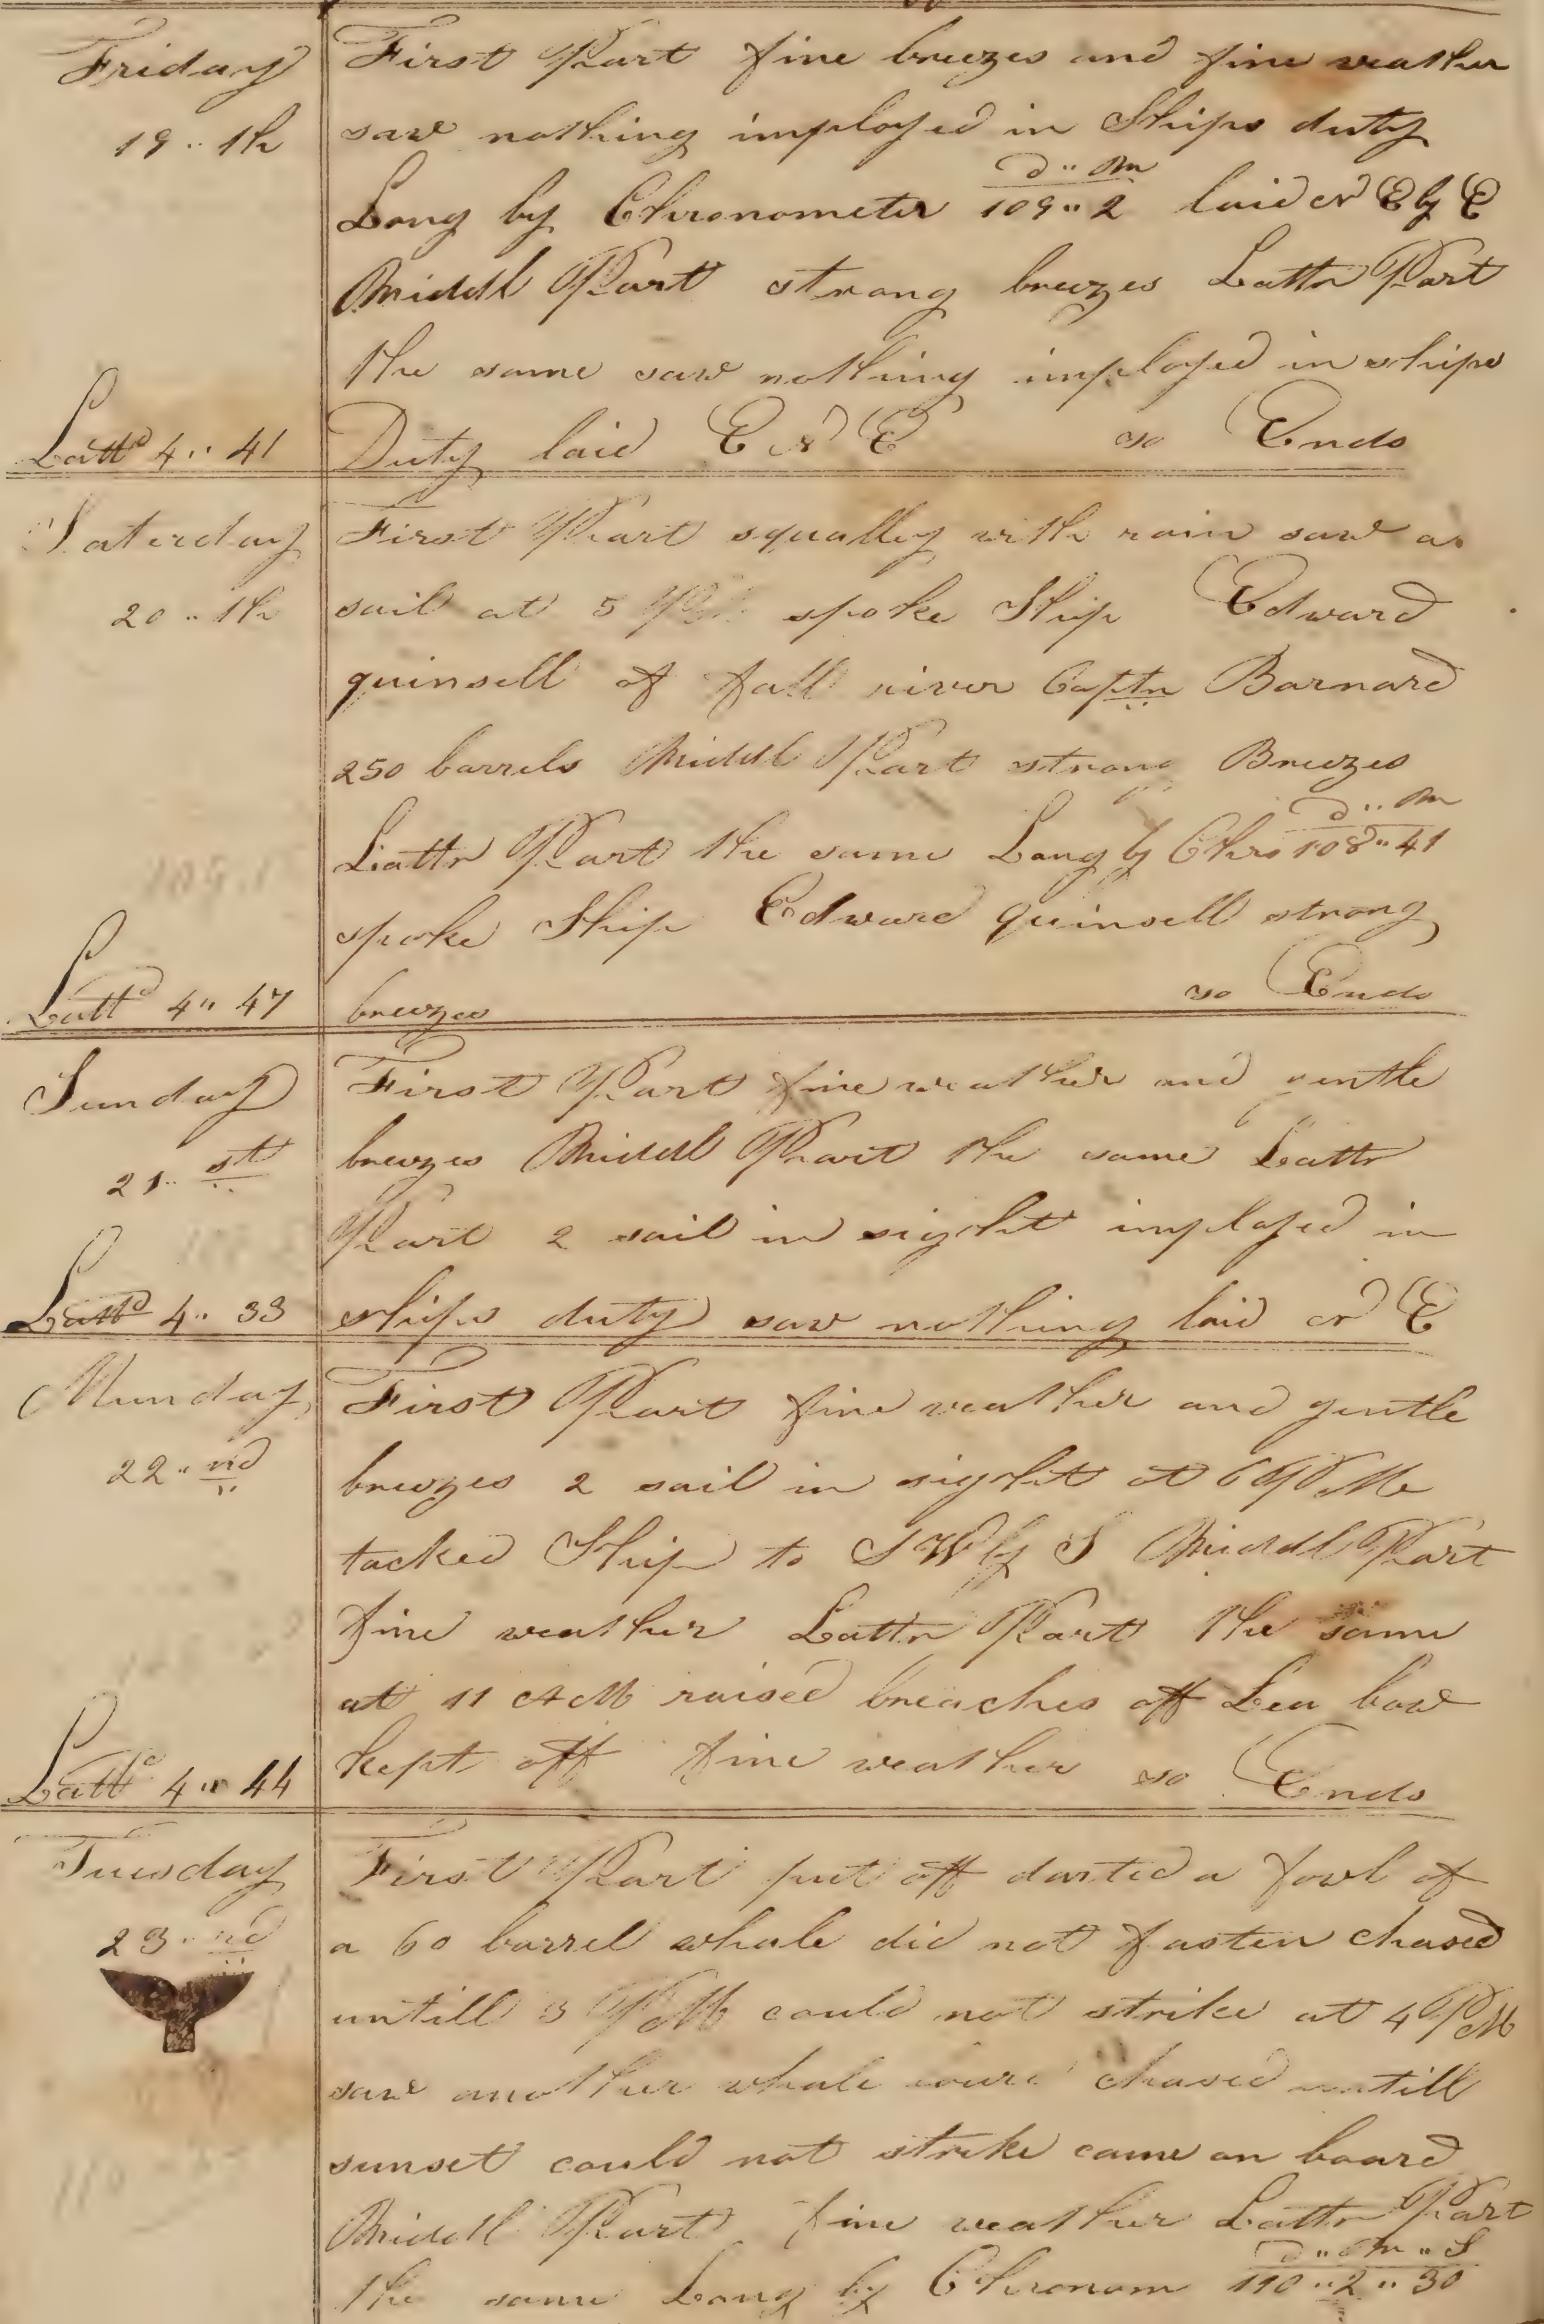 Friday
19 .. th
Lattd 4 .. 41
First Part fine breezes and fine weather
saw nothing imployed in Ships duty
d .. m
Long by Chronometer 109 .. 2 laid N E by E
Middl Part strong breezes Lattr Part
the same saw nothing imployed in ships
Duty laid E N E so Ends
Saterday
20 .. th
Lattd 4 .. 47
First Part squally with rain saw a
sail at 5 PM spoke Ship Edward
quinsell of fall river Captn Barnard
250 barrels Middl Part strong Breezes
d .. m
Lattr Part the same Long by Chro 108 .. 41
spoke Ship Edward quinsell strong
breezes so Ends
Sunday
21 .. st
Lattd 4 .. 33
First Part fine weather and gentle
breezes Middl Part the same Lattr
Part 2 sail in sight imployed in
ships duty saw nothing laid N E
Munday
22 .. nd
Lattd 4 .. 44
First Part fine weather and gentle
breezes 2 sail in sight at 6 PM
tacked Ship to S W by S Middl Part
fine weather Lattr Part the same
at 11 AM raised breaches off Lea bow
kept off fine weather so Ends
Tuesday
23 .. nd
First Part put off darted a fowl of
a 60 barrel whale did not fasten chased
untill 3 PM could not strike at 4 PM
saw another whale chased untill
sunset could not strike came on board
Middl Part fine weather Lattr Part
d .. m .. S
the same Long by Chronom 110 .. 2 .. 30